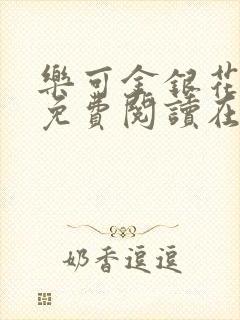 樂可金銀花
免費閱讀在
奶香逗逗